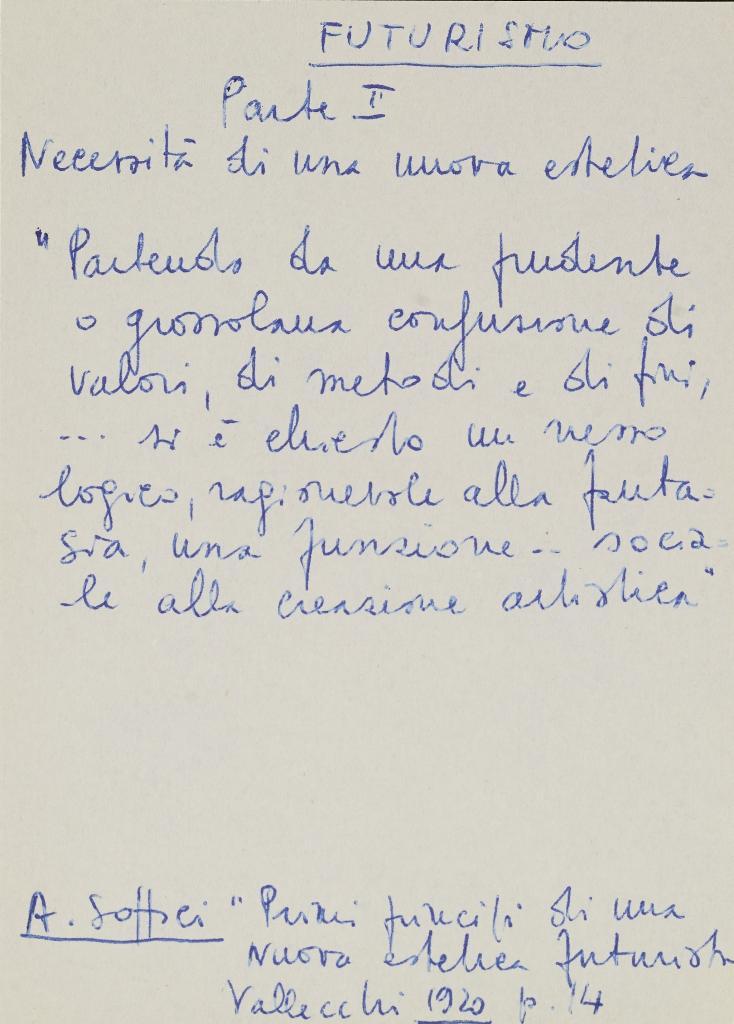 FUTURISMO
Parte II
Necessità di una nuova estetica
"Partendo da una prudente
o grossolana confusione di
valori, di metodi e di fini,
... si è chiesto un nesso
logico, ragionevole alla fanta=
sia, una funzione... socia=
le alla creazione artistica"
A. Soffici "Primi principi di una
Nuova estetica futurista
Vallecchi 1920 p. 14